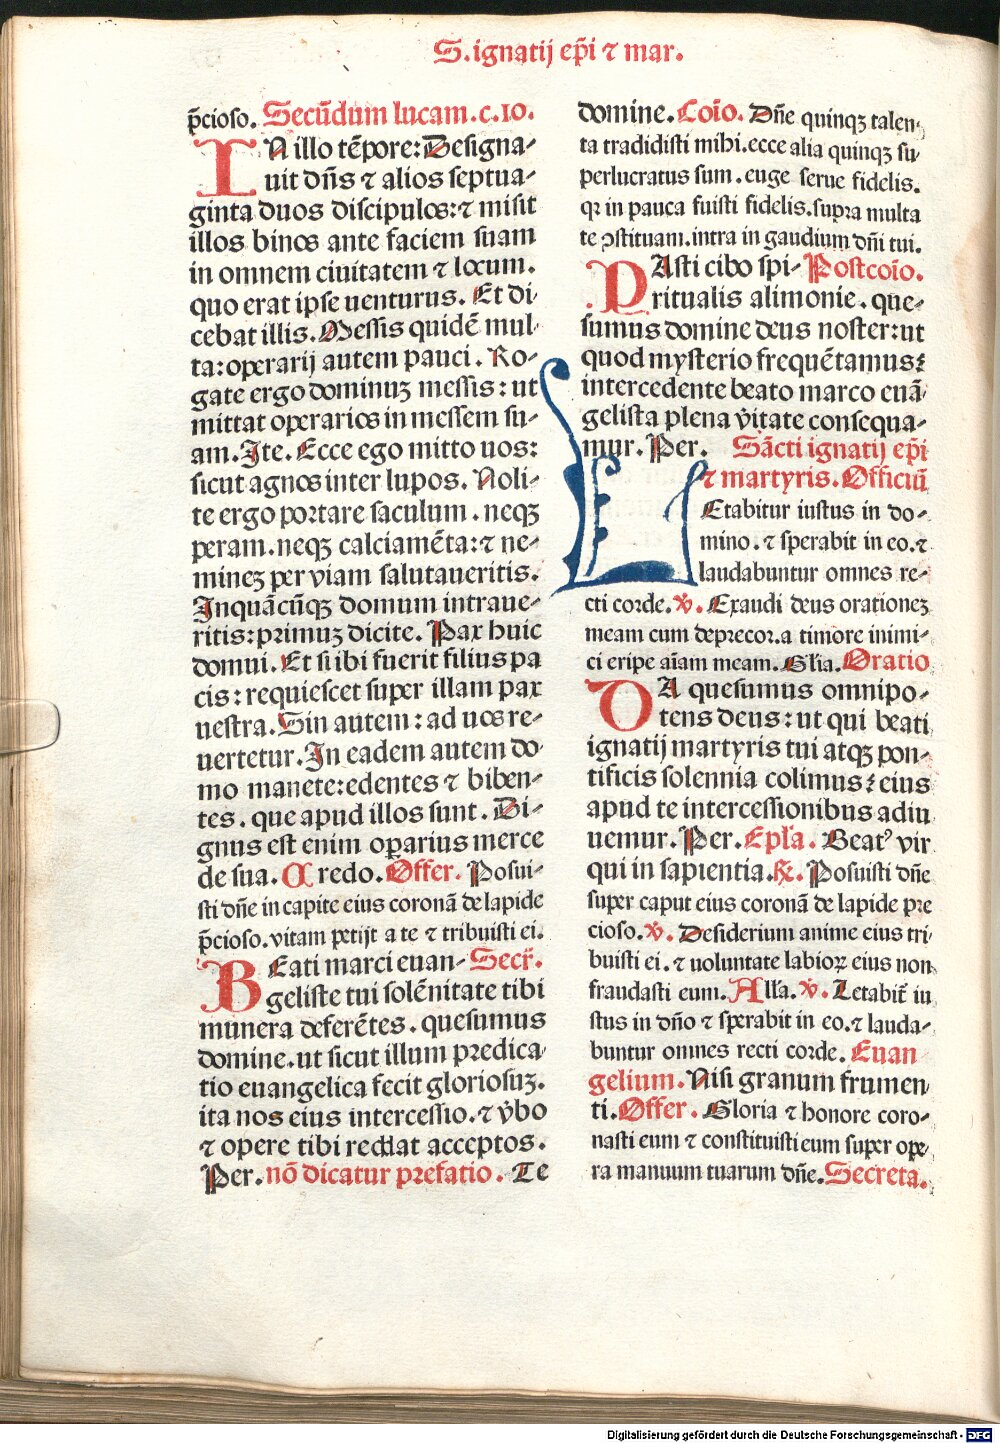 S. ignatij ep̃i ⁊ mar.
p̃cioso. Secũdum lucam.c.10.
IN illo tẽpore: Designa-
uit dñs ⁊ alios septua-
ginta duos discipulos: ⁊ misit
illos binos ante faciem suam
in omnem ciuitatem ⁊ locum.
quo erat ipse uenturus. Et di-
cebat illis. Messis quidẽ mul
ta: operarij autem pauci. Ro-
gate ergo dominuꝫ messis: ut
mittat operarios in messem su-
am. Ite. Ecce ego mitto uos:
sicut agnos inter lupos. Noli-
te ergo portare saculum. neqꝫ
peram. neqꝫ calciamẽta: ⁊ ne-
mineꝫ per viam salutaueritis.
Inquãcũqꝫ domum intraue-
ritis: primuꝫ dicite. Pax huic
domui. Et si ibi fuerit filius pa
cis: requiescet super illam pax
uestra. Sin autem: ad uos re-
uertetur. In eadem autem do
mo manete: edentes ⁊ biben-
tes. que apud illos sunt. Di-
gnus est enim oꝑarius merce
de sua. Credo. Offer. Posui-
sti dñe in capite eius coronã de lapide
p̃cioso. vitam petijt a te ⁊ tribuisti ei.
BEati marci euan- Secr̃.
geliste tui solẽnitate tibi
munera deferẽtes. quesumus
domine. ut sicut illum predica
tio euangelica fecit gloriosuꝫ.
ita nos eius intercessio. ⁊ v̇bo
⁊ opere tibi reddat acceptos.
Per. nõ dicatur prefatio. Te
domine. Coĩo. Dñe quinqꝫ talen-
ta tradidisti mihi. ecce alia quinqꝫ su
perlucratus sum. euge serue fidelis.
qꝛ in pauca fuisti fidelis. supra multa
te ꝯstituam. intra in gaudium dñi tui.
PAsti cibo spi- Postcoĩo.
ritualis alimonie. que-
sumus domine deus noster: ut
quod mysterio frequẽtamus:
intercedente beato marco euã-
gelista plena v̇itate consequa-
mur. Per. Sãcti ignatij ep̃i
⁊ martyris. Officiũ
LEtabitur iustus in do-
mino. ⁊ sperabit in eo. ⁊
laudabuntur omnes re-
cti corde. ℣. Exaudi deus orationeꝫ
meam cum deprecor. a timore inimi-
ci eripe aĩam meam. Gl̃ia. Oratio
DA quesumus omnipo-
tens deus: ut qui beati
ignatij martyris tui atqꝫ pon-
tificis solennia colimus: eius
apud te intercessionibus adiu
uemur. Per. Epl̃a. Beatꝰ vir
qui in sapientia. ℟. Posuisti dñe
super caput eius coronã de lapide pre
cioso. ℣. Desiderium anime eius tri
buisti ei. ⁊ uoluntate labioꝝ eius non
fraudasti eum. All̃a. ℣. Letabit̃ iu
stus in dño ⁊ sperabit in eo. ⁊ lauda-
buntur omnes recti corde. Euan
gelium. Nisi granum frumen
ti. Offer. Gloria ⁊ honore coro-
nasti eum ⁊ constituisti eum super ope
ra manuum tuarum dñe. Secreta.
Digitalisierung gefördert durch die Deutsche Forschungsgemeinschaft - DFG